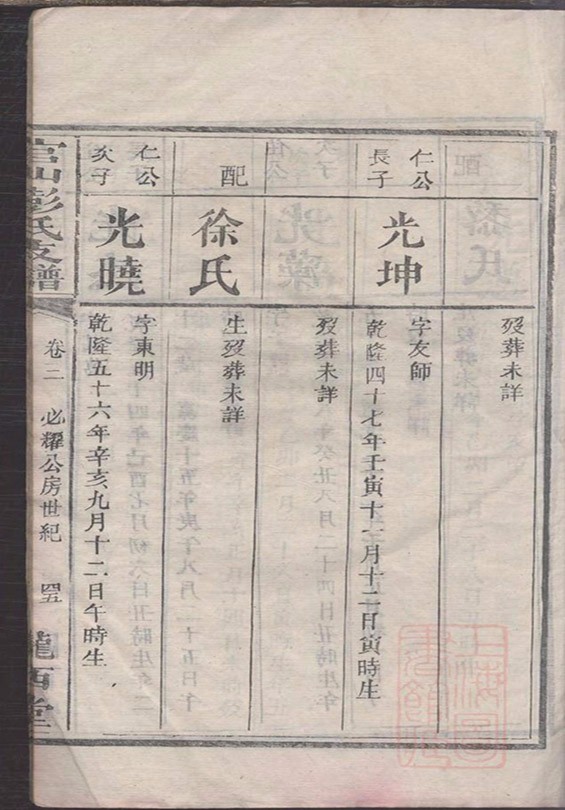 歿葬未詳
仁公
長子
光坤
字友師
乾隆四十七年壬寅十一月十二日寅時生
歿葬未詳
配
徐氏
生歿葬未詳
仁公
次子
光曉
字東明
乾隆五十六年辛亥九月十二日午時生
官山彭氏支譜
卷二
必耀公房世紀
四五
隴西堂
上海圖
書館藏